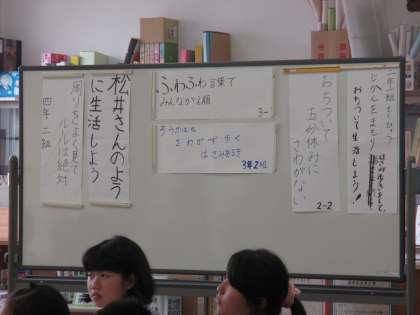 二年一組もくひょう
じかんをまもり
おちついて生活しよう!
おちついて
五分休みに
さわがない
2-2
ふわふわ言葉で
みんながえ顔
3-1
ろうかはね
さわがず歩く
はさみ言葉
3年2組
松井さんのよう
に生活しよう
周りをよく見て
ルールは絶対
四年 二組